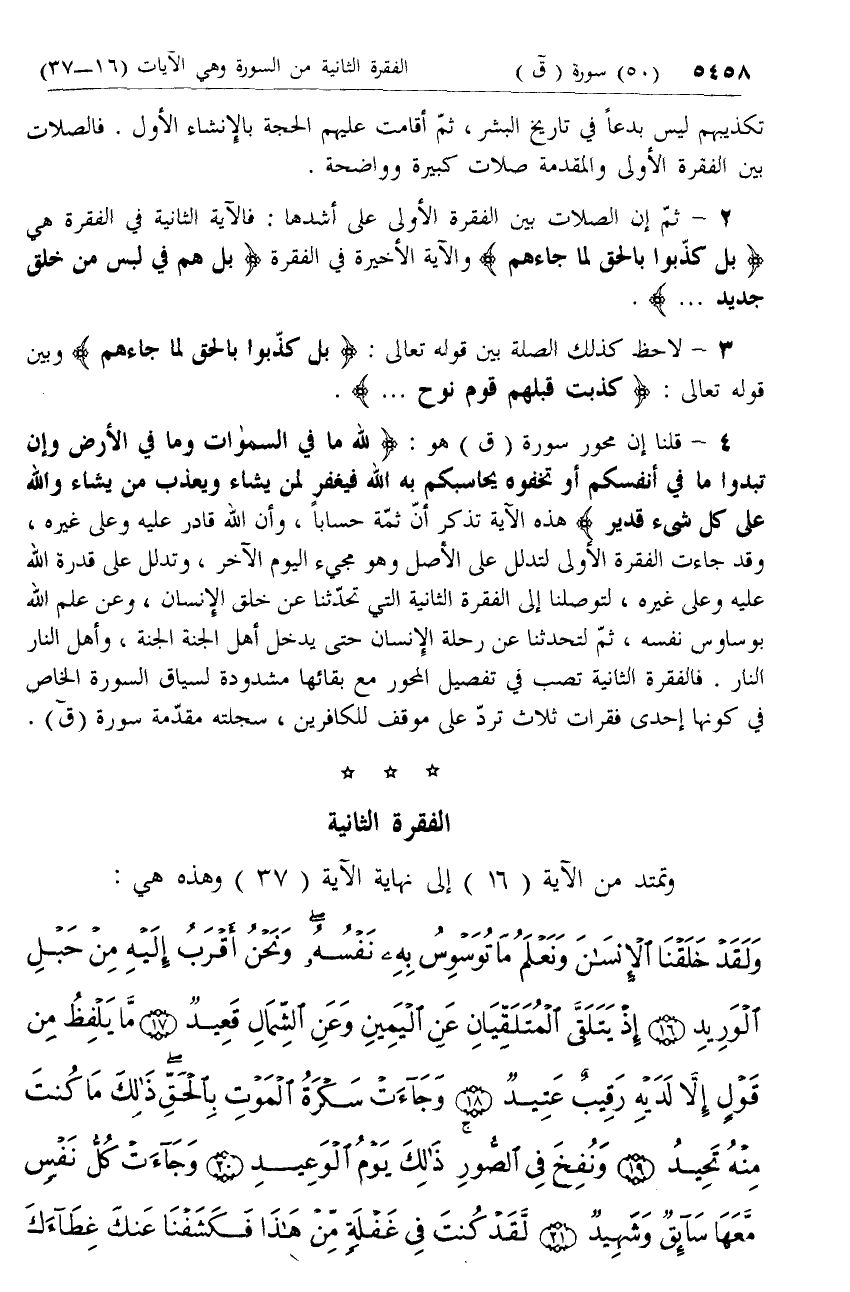 ٥٤٥٨ (٥٠) سورة ( قۤ ) الفقرة الثانية من السورة وهي الآيات (١٦–٣٧)
تكذيبهم ليس بدعاً في تاريخ البشر ، ثمّ أقامت عليهم الحجة بالإنشاء الأول . فالصلات
بين الفقرة الأولى والمقدمة صلات كبيرة وواضحة .
٢ – ثمّ إن الصلات بين الفقرة الأولى على أشدها : فالآية الثانية في الفقرة هي
﴿ بل كذّبوا بالحق لما جاءهم ﴾ والآية الأخيرة في الفقرة ﴿ بل هم في لبس من خلق
جديد ... ﴾ .
٣ – لاحظ كذلك الصلة بين قوله تعالى : ﴿ بل كذّبوا بالحق لما جاءهم ﴾ وبين
قوله تعالى : ﴿ كذبت قبلهم قوم نوح ... ﴾ .
٤ – قلنا إن محور سورة ( ق ) هو : ﴿ لله ما في السمٰوات وما في الأرض وإن
تبدوا ما في أنفسكم أو تخفوه يحاسبكم به الله فيغفر لمن يشاء ويعذب من يشاء والله
على كل شىء قدير ﴾ هذه الآية تذكر أنّ ثمّة حساباً ، وأن الله قادر عليه وعلى غيره ،
وقد جاءت الفقرة الأولى لتدلل على الأصل وهو مجيء اليوم الآخر ، وتدلل على قدرة الله
عليه وعلى غيره ، لتوصلنا إلى الفقرة الثانية التي تحدّثنا عن خلق الإنسان ، وعن علم الله
بوساوس نفسه ، ثمّ لتحدثنا عن رحلة الإنسان حتى يدخل أهل الجنة الجنة ، وأهل النار
النار . فالفقرة الثانية تصب في تفصيل المحور مع بقائها مشدودة لسياق السورة الخاص
في كونها إحدى فقرات ثلاث تردّ على موقف للكافرين ، سجلته مقدّمة سورة (قۤ) .
☆ ☆ ☆
الفقرة الثانية
وتمتد من الآية ( ١٦ ) إلى نهاية الآية ( ٣٧ ) وهذه هي :
وَلَقَدْ خَلَقْنَا ٱلْإِنسَـٰنَ وَنَعْلَمُ مَا تُوَسْوِسُ بِهِۦ نَفْسُهُۥۖ وَنَحْنُ أَقْرَبُ إِلَيْهِ مِنْ حَبْلِ
ٱلْوَرِيدِ ﴿١٦﴾ إِذْ يَتَلَقَّى ٱلْمُتَلَقِّيَانِ عَنِ ٱلْيَمِينِ وَعَنِ ٱلشِّمَالِ قَعِيدٌ ﴿١٧﴾ مَّا يَلْفِظُ مِن
قَوْلٍ إِلَّا لَدَيْهِ رَقِيبٌ عَتِيدٌ ﴿١٨﴾ وَجَآءَتْ سَكْرَةُ ٱلْمَوْتِ بِٱلْحَقِّۖ ذَٰلِكَ مَا كُنتَ
مِنْهُ تَحِيدُ ﴿١٩﴾ وَنُفِخَ فِى ٱلصُّورِۚ ذَٰلِكَ يَوْمُ ٱلْوَعِيدِ ﴿٢٠﴾ وَجَآءَتْ كُلُّ نَفْسٍ
مَّعَهَا سَآئِقٌ وَشَهِيدٌ ﴿٢١﴾ لَّقَدْ كُنتَ فِى غَفْلَةٍ مِّنْ هَـٰذَا فَكَشَفْنَا عَنكَ غِطَآءَكَ